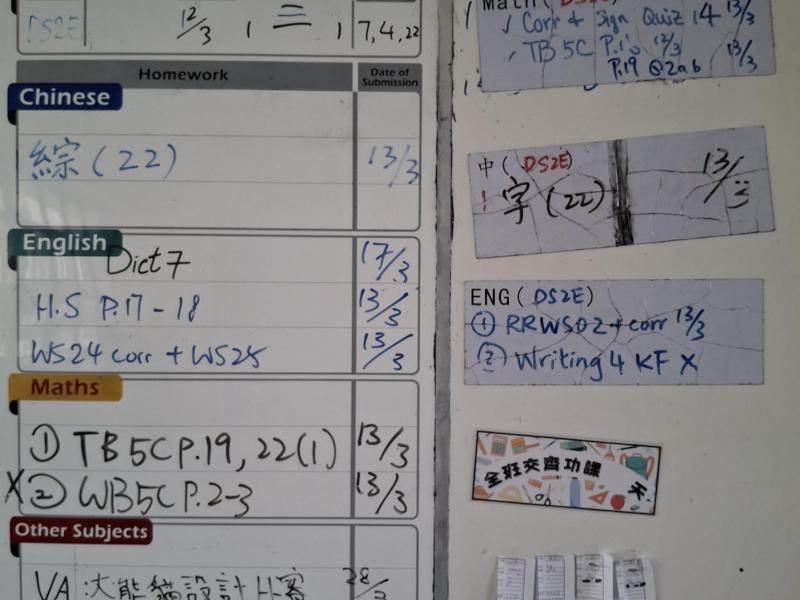 DS2E 12/3, 三, 7,4,22
Homework Date of Submission
Chinese
綜(22) 13/3
English
Dict 7 17/3
H.S P.17-18 13/3
WS24 corr + WS25 13/3
Maths
① TB 5C P.19, 22(1) 13/3
X② WB5C P.2-3 13/3
Other Subjects
VA 大熊貓設計比賽 28/3
Corr & Sign Quiz 14 13/3
TB 5C P.19 Q2ab 13/3
中(DS2E)
字(22) 13/3
ENG(DS2E)
① RRWS02 + corr 13/3
② Writing 4 KF X
全班交齊功課 天